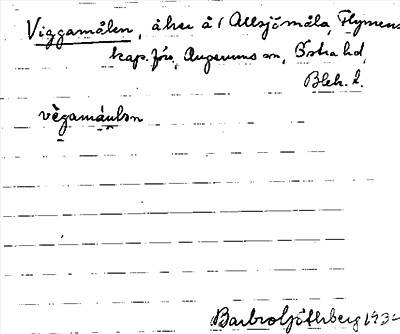 Viggamålen, åker å 1 Allsjömåla, Flymens
kap. förs, Augerums sn, Östra hd,
Blek. l.
vègamáulsn
Barbro Ljötterberg 193